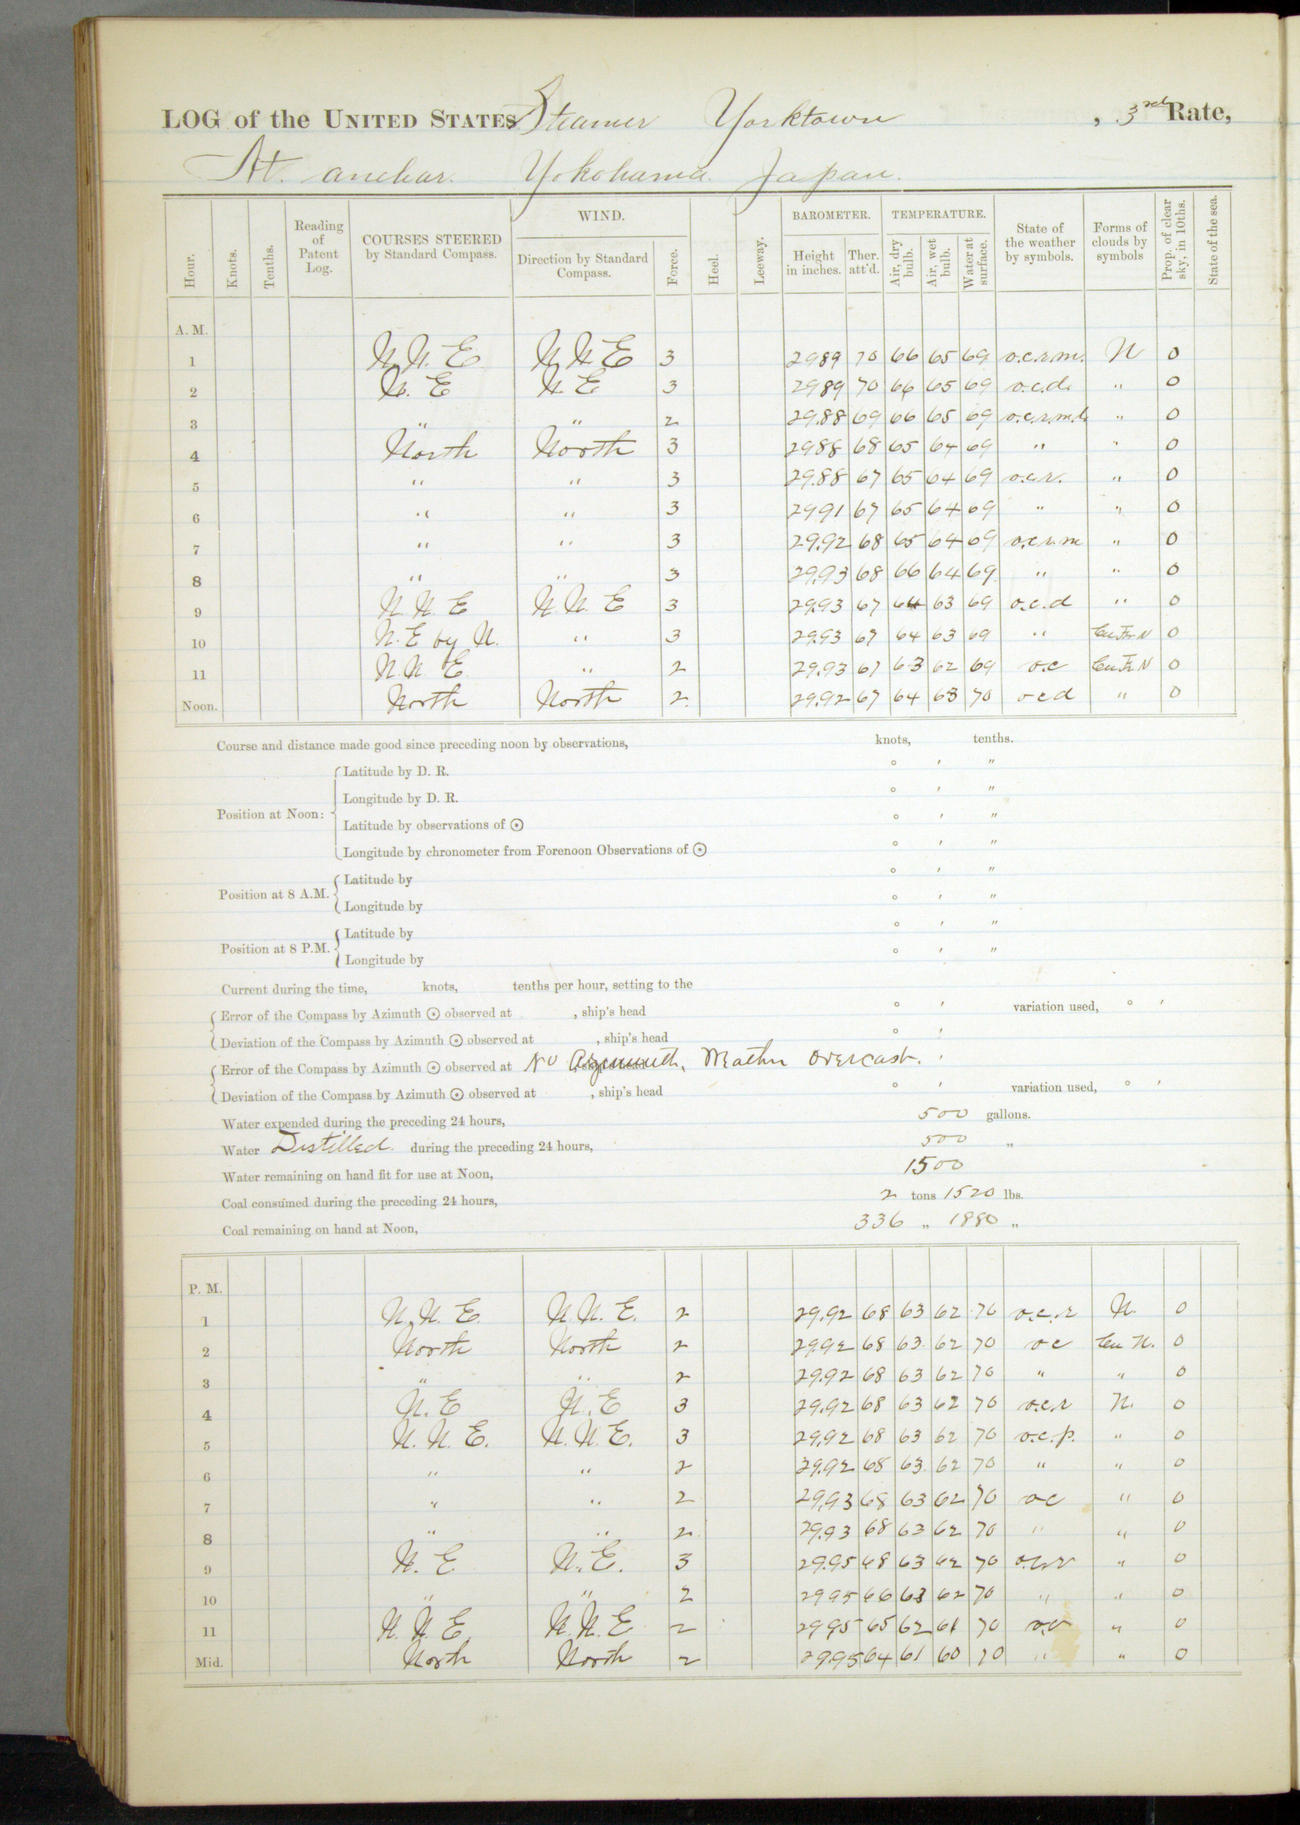 LOG of the UNITED STATES Steamer Yorktown , 3rd Rate,
At anchor. Yokohama Japan.
Hour. Knots. Tenths. Reading of Patent Log. COURSES STEERED by Standard Compass. WIND. Direction by Standard Compass. Force. Heel. Leeway. BAROMETER. Height in inches. Ther. att'd. TEMPERATURE. Air, dry bulb. Air, wet bulb. Water at surface. State of the weather by symbols. Forms of clouds by symbols Prop. of clear sky, in 10ths. State of the sea.
A. M.
1 N.N.E N.N.E 3 2989 70 66 65 69 o.c.r.m. N 0
2 N.E N.E 3 2989 70 66 65 69 o.c.d. " 0
3 " " 2 29.88 69 66 65 69 " 0
4 North North 3 2988 68 65 64 69 " " 0
5 " " 3 29.88 67 65 64 69 o.c.r. " 0
6 " " 3 2991 67 65 64 69 " " 0
7 " " 3 29.92 68 65 64 69 o.c.r.m " 0
8 " " 3 29.93 68 66 64 69 " " 0
9 N.N.E N.N.E 3 29.93 67 64 63 69 o.c.d " 0
10 N.E by N. " 3 29.93 67 64 63 69 " Cu.Fr.N 0
11 N.N.E " 2 29.93 67 63 62 69 o.c Cu.Fr.N 0
Noon. North North 2 29.92 67 64 63 70 o.c.d " 0
Course and distance made good since preceding noon by observations, knots, tenths.
Position at Noon: Latitude by D. R. ° ′ ″
Longitude by D. R. ° ′ ″
Latitude by observations of ☉ ° ′ ″
Longitude by chronometer from Forenoon Observations of ☉ ° ′ ″
Position at 8 A.M. Latitude by ° ′ ″
Longitude by ° ′ ″
Position at 8 P.M. Latitude by ° ′ ″
Longitude by ° ′ ″
Current during the time, knots, tenths per hour, setting to the
Error of the Compass by Azimuth ☉ observed at , ship's head ° ′ variation used, ° ′
Deviation of the Compass by Azimuth ☉ observed at , ship's head ° ′
Error of the Compass by Azimuth ☉ observed at No Azimuth, Weather overcast. ′
Deviation of the Compass by Azimuth ☉ observed at , ship's head ° ′ variation used, ° ′
Water expended during the preceding 24 hours, 500 gallons.
Water Distilled during the preceding 24 hours, 500 "
Water remaining on hand fit for use at Noon, 1500
Coal consumed during the preceding 24 hours, 2 tons 1520 lbs.
Coal remaining on hand at Noon, 336 " 1880 "
P. M.
1 N.N.E N.N.E. 2 29.92 68 63 62 70 o.c.r N. 0
2 North North 2 29.92 68 63 62 70 oc Cu.N. 0
3 " " 2 29.92 68 63 62 70 " " 0
4 N.E N.E 3 29.92 68 63 62 70 o.c.r N. 0
5 N.N.E. N.N.E. 3 29.92 68 63 62 70 o.c.p. " 0
6 " " 2 29.92 68 63 62 70 " " 0
7 " " 2 29.93 68 63 62 70 oc " 0
8 " " 2 29.93 68 63 62 70 " " 0
9 N.E N.E. 3 29.95 68 63 62 70 o.c.r " 0
10 " " 2 2995 66 63 62 70 " " 0
11 N.N.E N.N.E 2 2995 65 62 61 70 o.c " 0
Mid. North North 2 29.95 64 61 60 70 " " 0